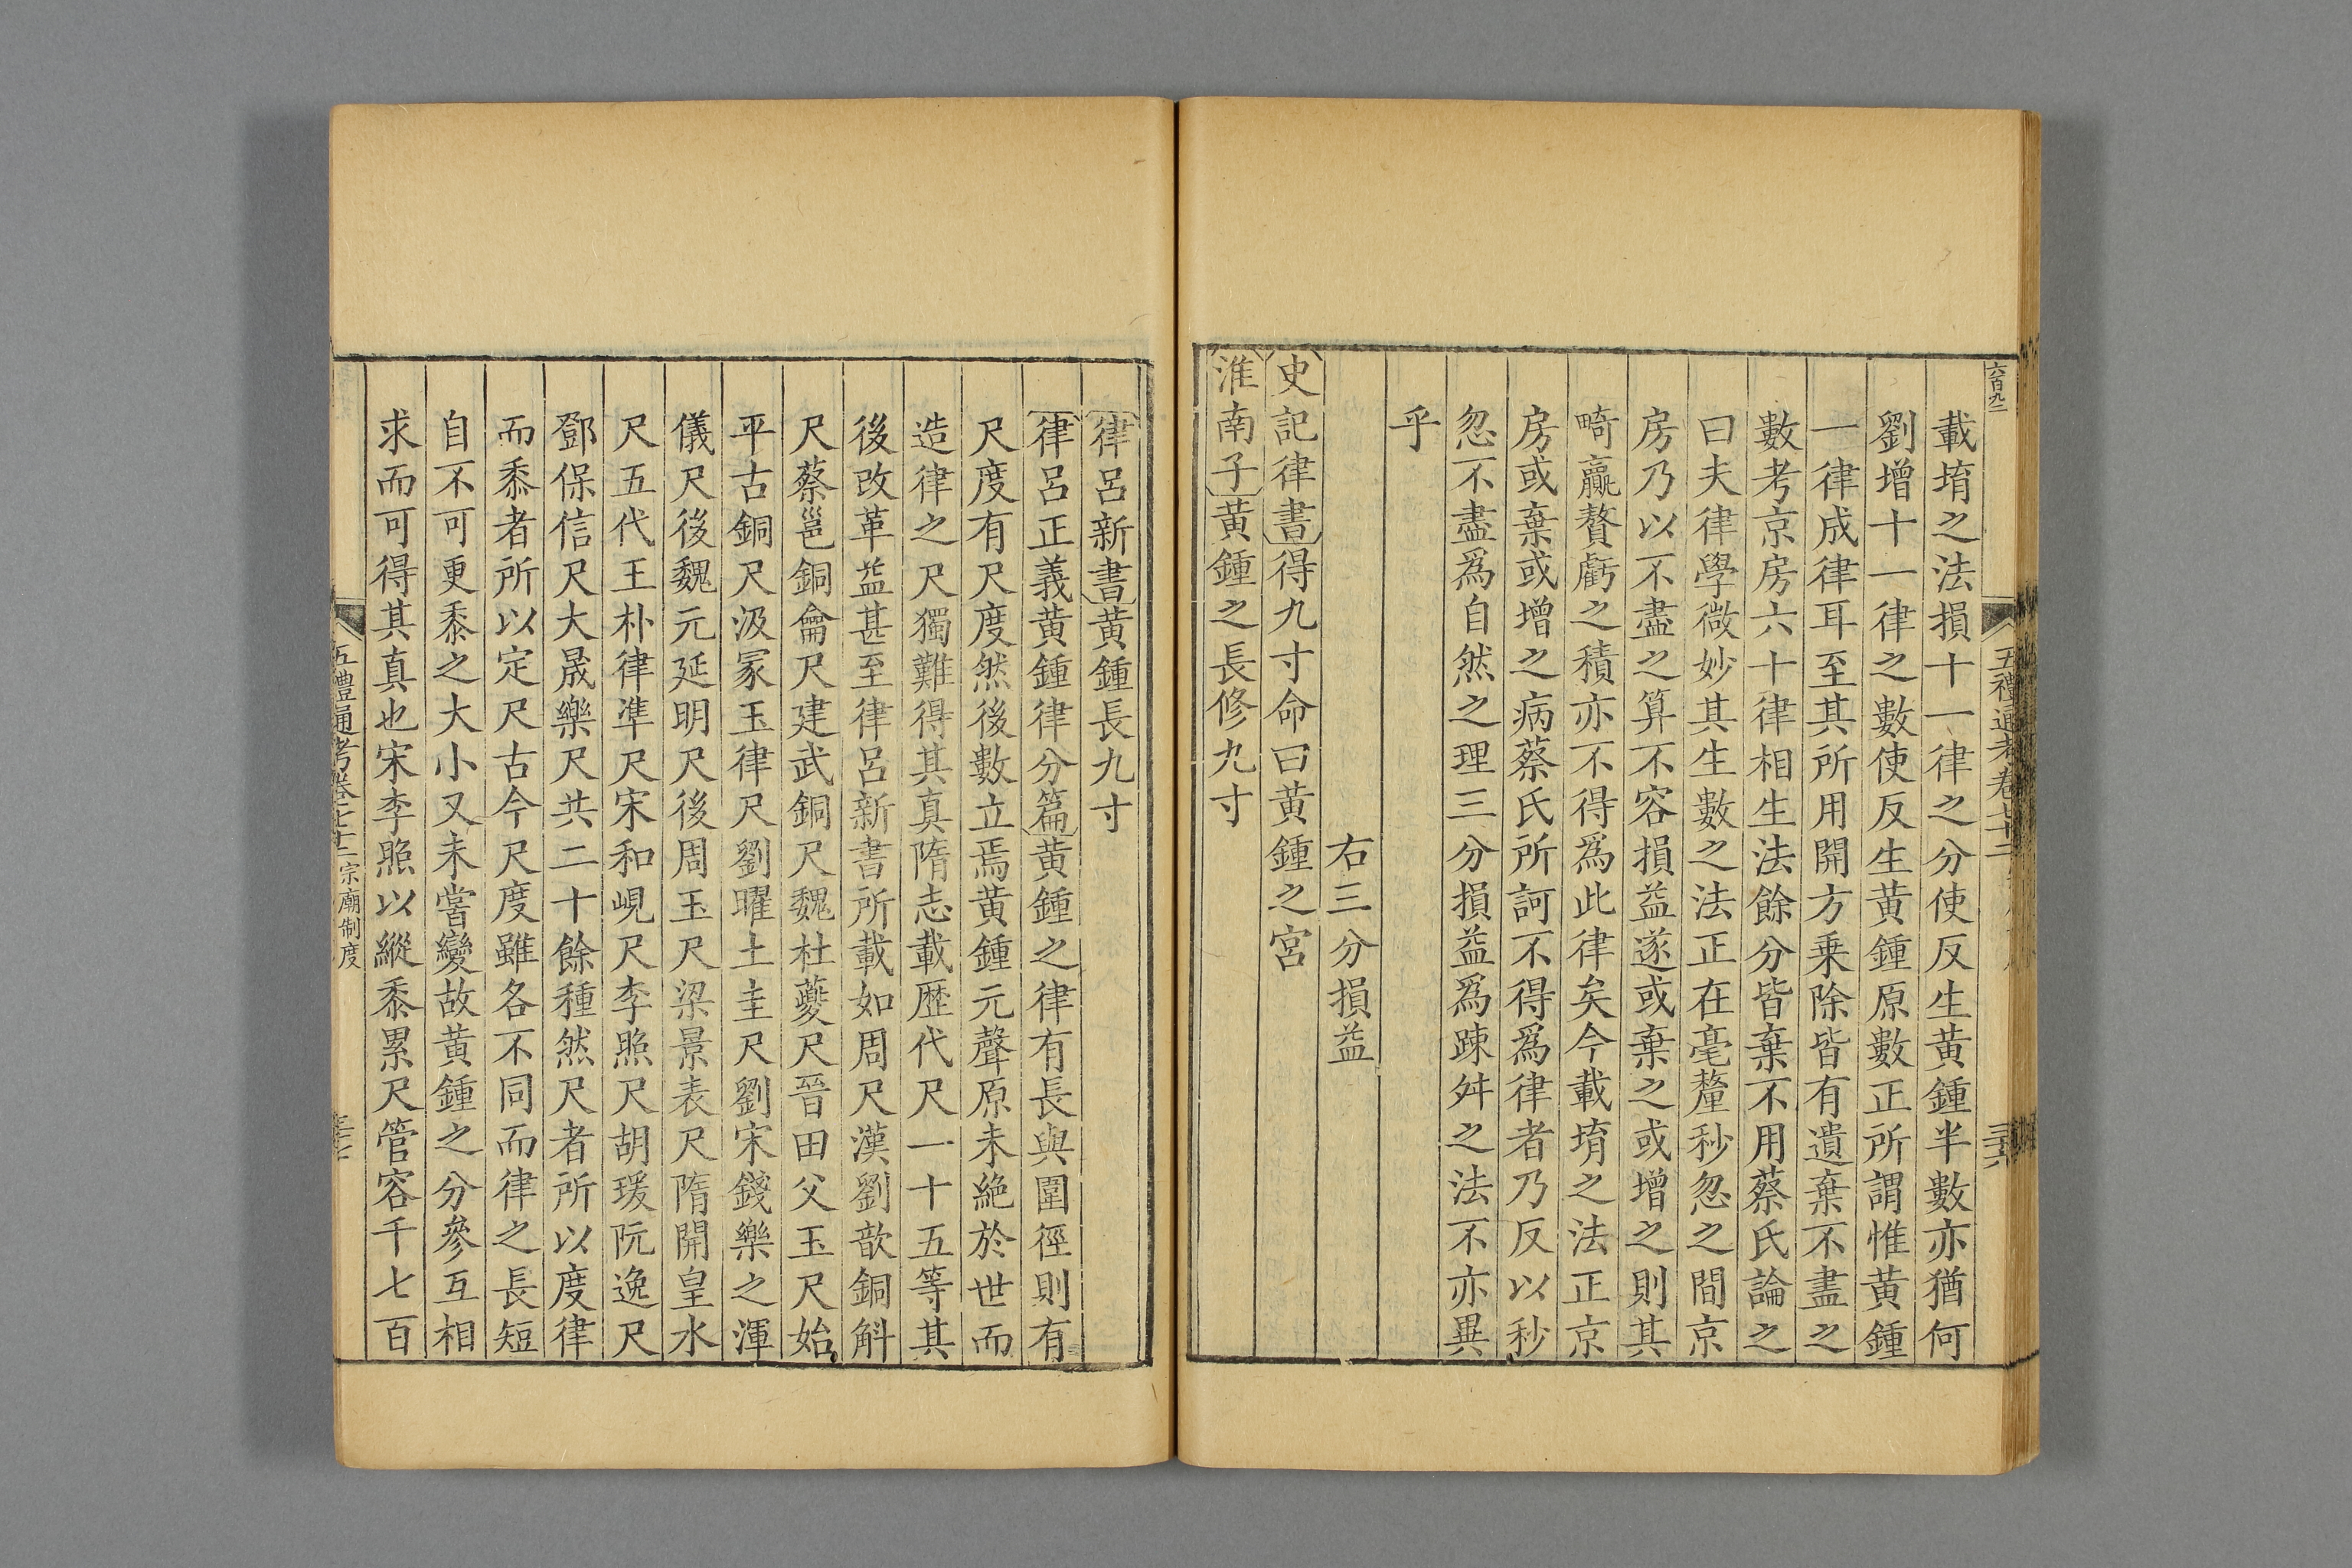 六百九二
五禮通考卷七十二
三十六
載堉之法損十一律之分使反生黃鍾半數亦猶何
劉增十一律之數使反生黃鍾原數正所謂惟黃鍾
一律成律耳至其所用開方乗除皆有遺棄不盡之
數考京房六十律相生法餘分皆棄不用蔡氏論之
曰夫律學微妙其生數之法正在毫釐秒忽之間京
房乃以不盡之算不容損益遂或棄之或增之則其
畸贏贅虧之積亦不得爲此律矣今載堉之法正京
房或棄或增之病蔡氏所訶不得爲律者乃反以秒
忽不盡爲自然之理三分損益爲踈舛之法不亦異
乎
右三分損益
史記律書得九寸命曰黃鍾之宮
淮南子黃鍾之長修九寸
律呂新書黃鍾長九寸
律呂正義黃鍾律分篇黃鍾之律有長與圍徑則有
尺度有尺度然後數立焉黃鍾元聲原未絶於世而
造律之尺獨難得其真隋志載歴代尺一十五等其
後改革益甚至律呂新書所載如周尺漢劉歆銅斛
尺蔡邕銅龠尺建武銅尺魏杜夔尺晉田父玉尺始
平古銅尺汲冢玉律尺劉曜土圭尺劉宋錢樂之渾
儀尺後魏元延明尺後周玉尺梁景表尺隋開皇水
尺五代王朴律凖尺宋和峴尺李照尺胡瑗阮逸尺
鄧保信尺大晟樂尺共二十餘種然尺者所以度律
而黍者所以定尺古今尺度雖各不同而律之長短
自不可更黍之大小又未嘗變故黃鍾之分參互相
求而可得其真也宋李照以縱黍累尺管容千七百
五禮通考卷七十二 宗廟制度
三十七